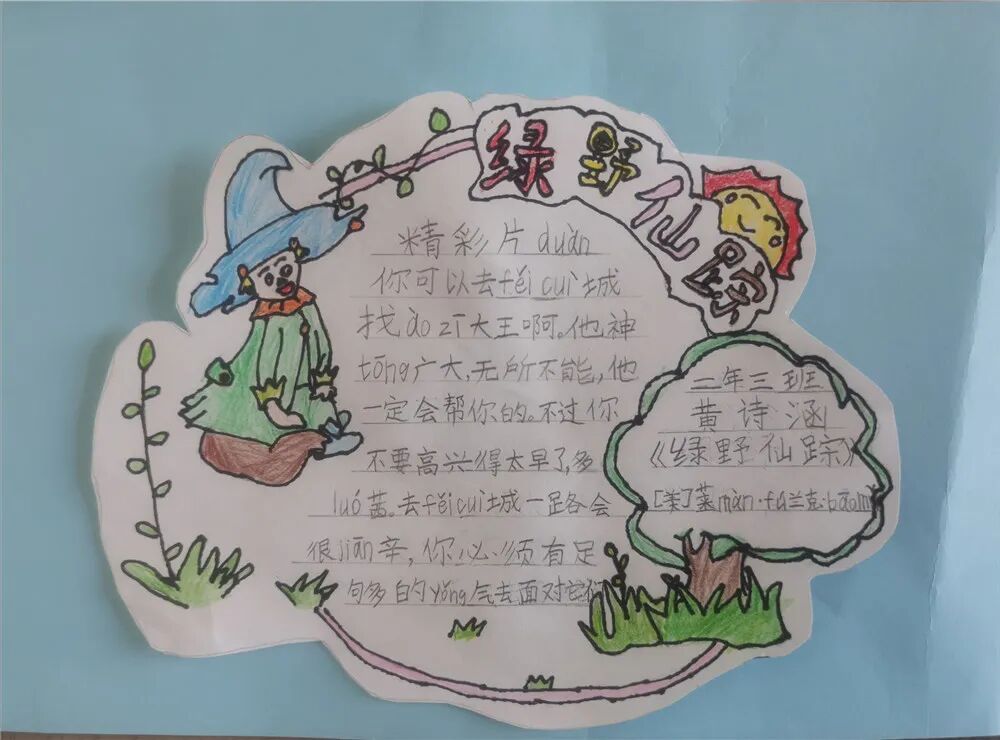 绿野仙踪
精彩片duàn
你可以去fěi cuì城
找ào zī大王啊。他神
tōng广大,无所不能,他
一定会帮你的。不过你
不要高兴得太早了,多
luó茜。去fěi cuì城一足各会
很jiān辛,你必须有足
句多的yǒng气去面对它们
二年三班
黄诗涵
《绿野仙踪》
[美]莱màn·fú兰克·bāom